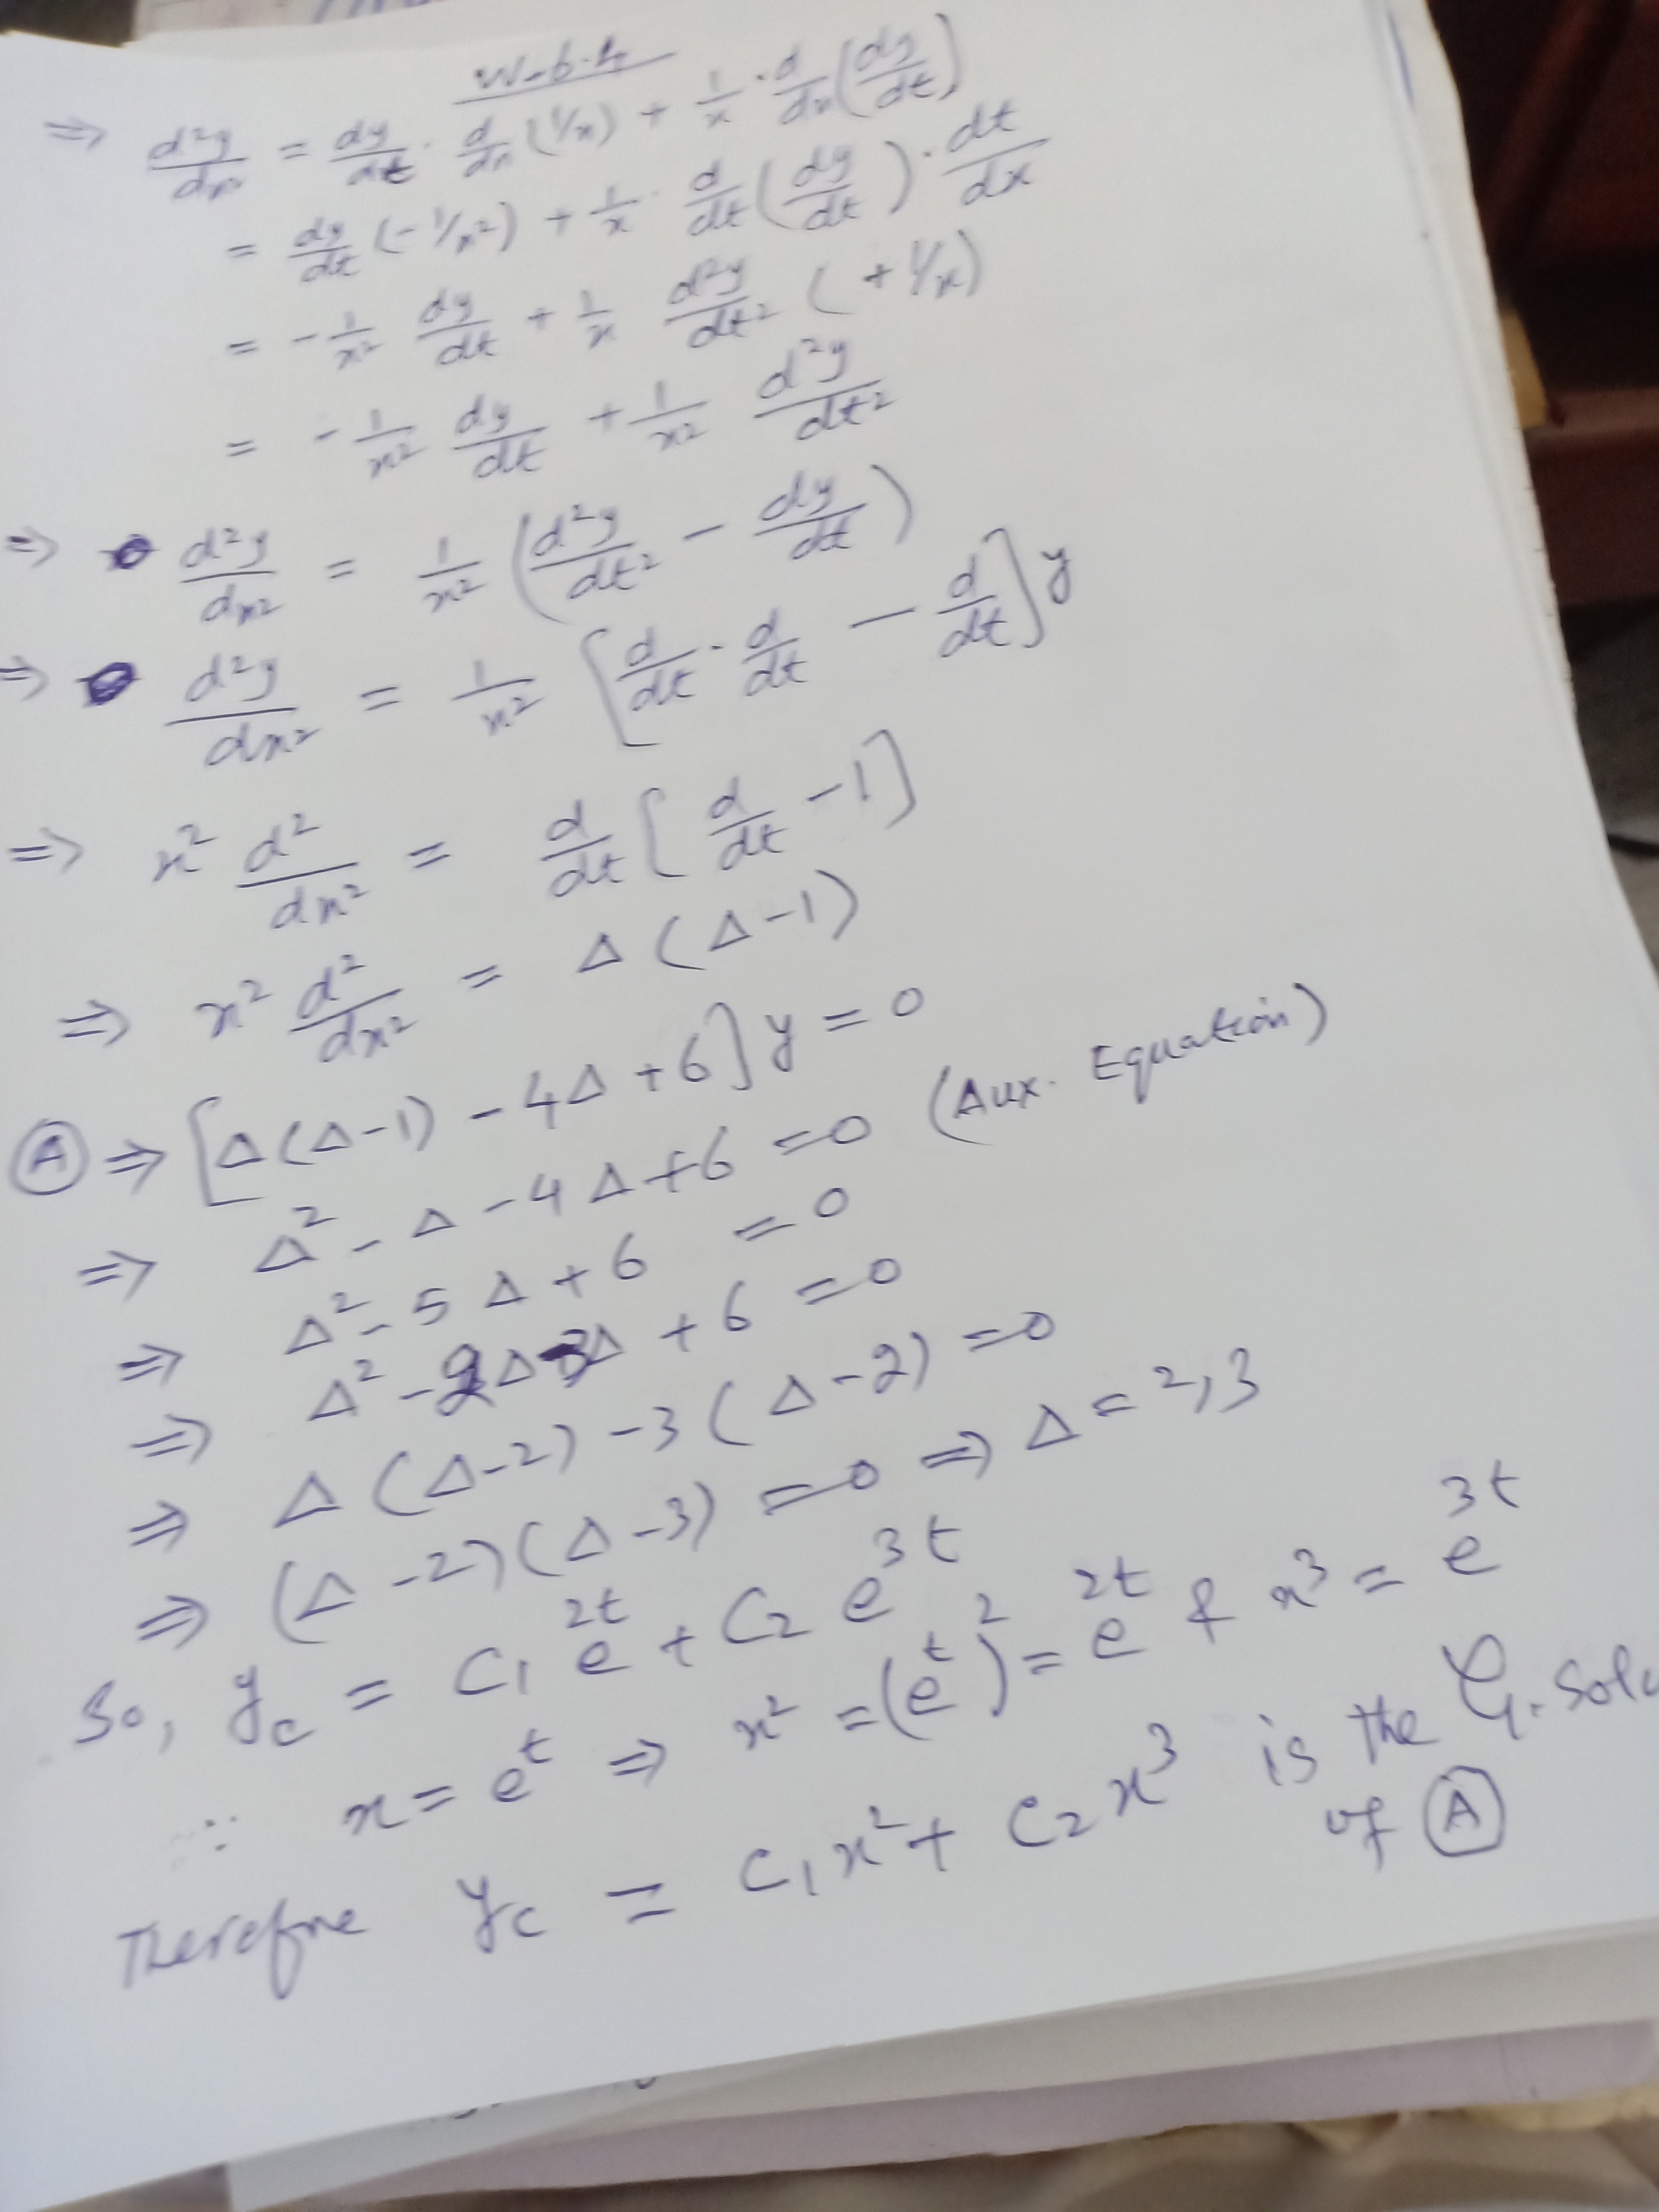 W-6.4
⇒ d²y/dx² = dy/dt · d/dx (1/x) + 1/x · d/dx (dy/dt)
= dy/dt (-1/x²) + 1/x · d/dt (dy/dt) · dt/dx
= -1/x² dy/dt + 1/x d²y/dt² (+1/x)
= -1/x² dy/dt + 1/x² d²y/dt²
⇒ d²y/dx² = 1/x² (d²y/dt² - dy/dt)
⇒ d²y/dx² = 1/x² [d/dt · d/dt - d/dt] y
⇒ x² d²/dx² = d/dt [d/dt - 1]
⇒ x² d²/dx² = Δ(Δ-1)
Ⓐ ⇒ [Δ(Δ-1) - 4Δ + 6] y = 0
⇒ Δ² - Δ - 4Δ + 6 = 0 (Aux. Equation)
⇒ Δ² - 5Δ + 6 = 0
⇒ Δ² - 2Δ - 3Δ + 6 = 0
⇒ Δ(Δ-2) - 3(Δ-2) = 0
⇒ (Δ-2)(Δ-3) = 0 ⇒ Δ = 2,3
So, y_c = C₁ e^{2t} + C₂ e^{3t}
∵ x = e^t ⇒ x² = (e^t)² = e^{2t} & x³ = e^{3t}
Therefore y_c = C₁x² + C₂x³ is the G. Solu
of Ⓐ